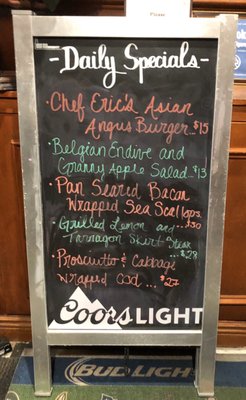 Please
-Daily Specials-
• Chef Eric's Asian
Angus Burger... $15
• Belgian Endive and
Granny Apple Salad... $13
• Pan Seared Bacon
Wrapped Sea Scallops
... $30
• Grilled Lemon and
Tarragon Skirt Steak
... $28
• Prosciutto & Cabbage
Wrapped Cod ... $27
Coors LIGHT
BUD LIGHT